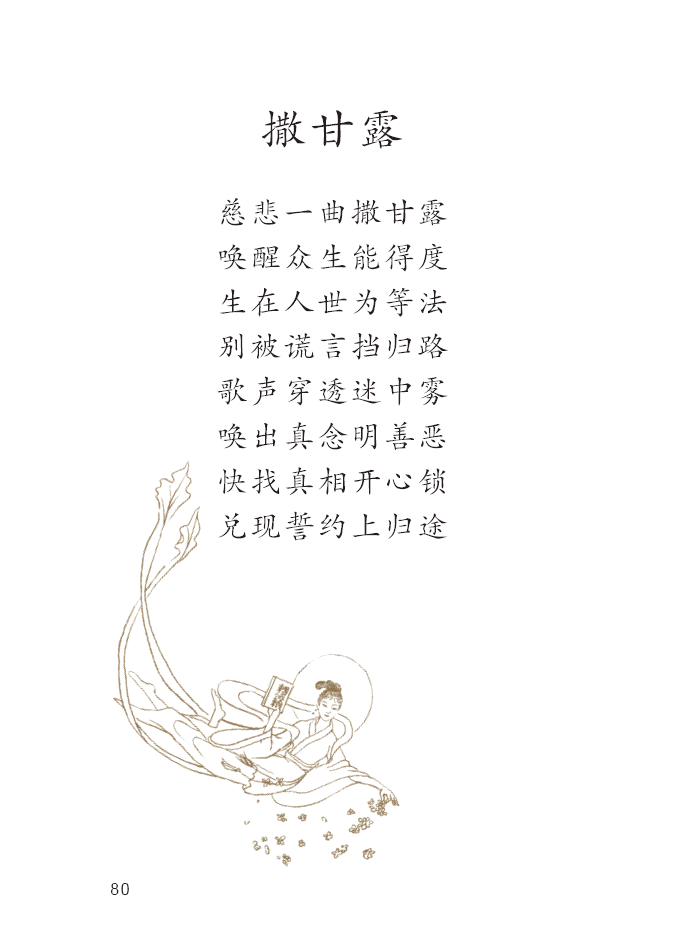 撒甘露
慈悲一曲撒甘露
唤醒众生能得度
生在人世为等法
别被谎言挡归路
歌声穿透迷中雾
唤出真念明善恶
快找真相开心锁
兑现誓约上归途
80